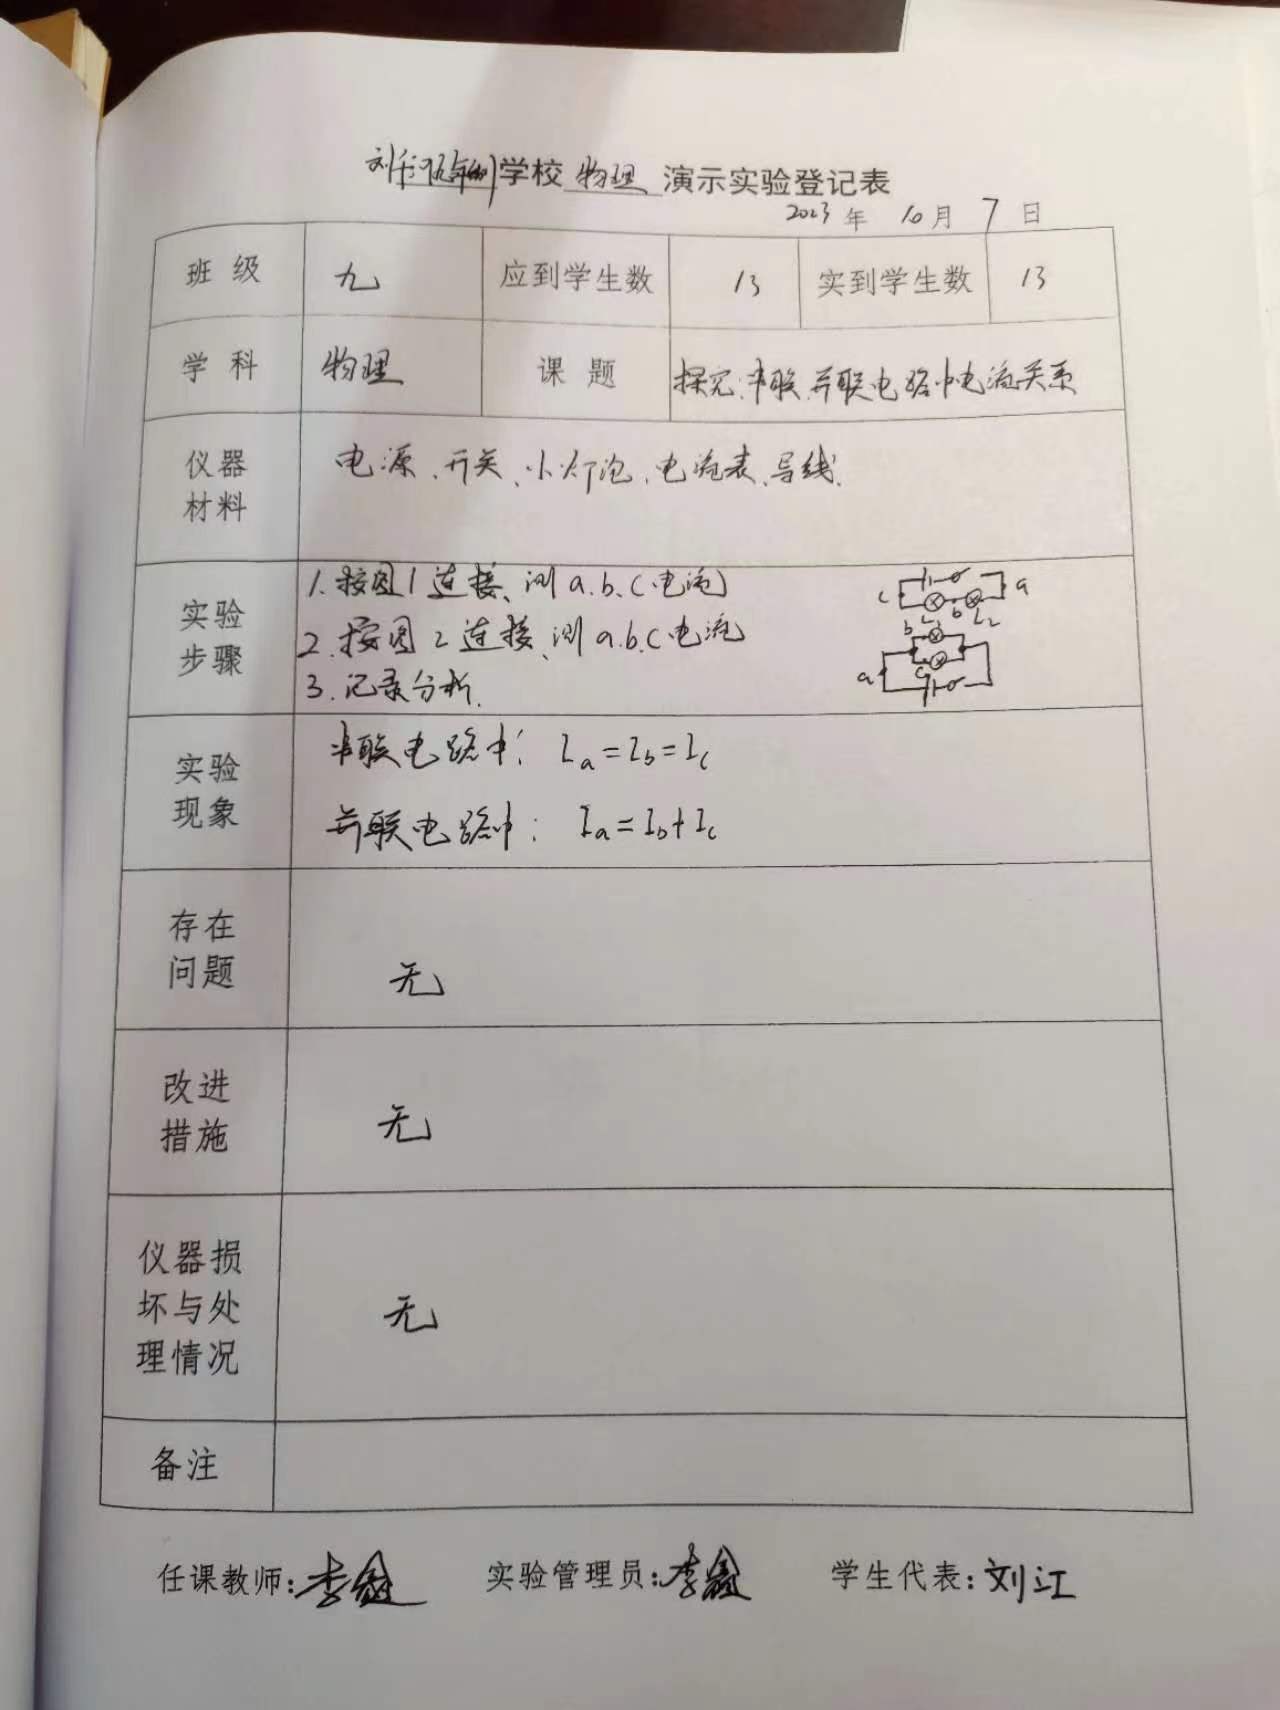 学校 物理 演示实验登记表
2023 年 10 月 7 日
班级 九 应到学生数 13 实到学生数 13
学科 物理 课题 探究串联、并联电路中电流关系
仪器材料 电源、开关、小灯泡、电流表、导线.
实验步骤
1.按图1连接、测a.b.c电流
2.按图2连接、测a.b.c电流
3.记录分析.
c L₁ b L₂ a
b
c
a
实验现象
串联电路中: Ia=Ib=Ic
并联电路中: Ia=Ib+Ic
存在问题 无
改进措施 无
仪器损坏与处理情况 无
备注
任课教师:李鑫 实验管理员:李鑫 学生代表:刘江